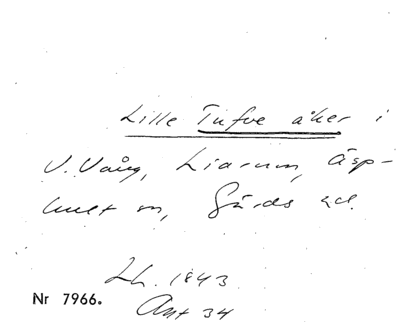 Lille Tufve åker i
V. Vång, Liarum, Äsp-
hult sn, Gärds hd.
Lh. 1843
Akt 34
Nr 7966.